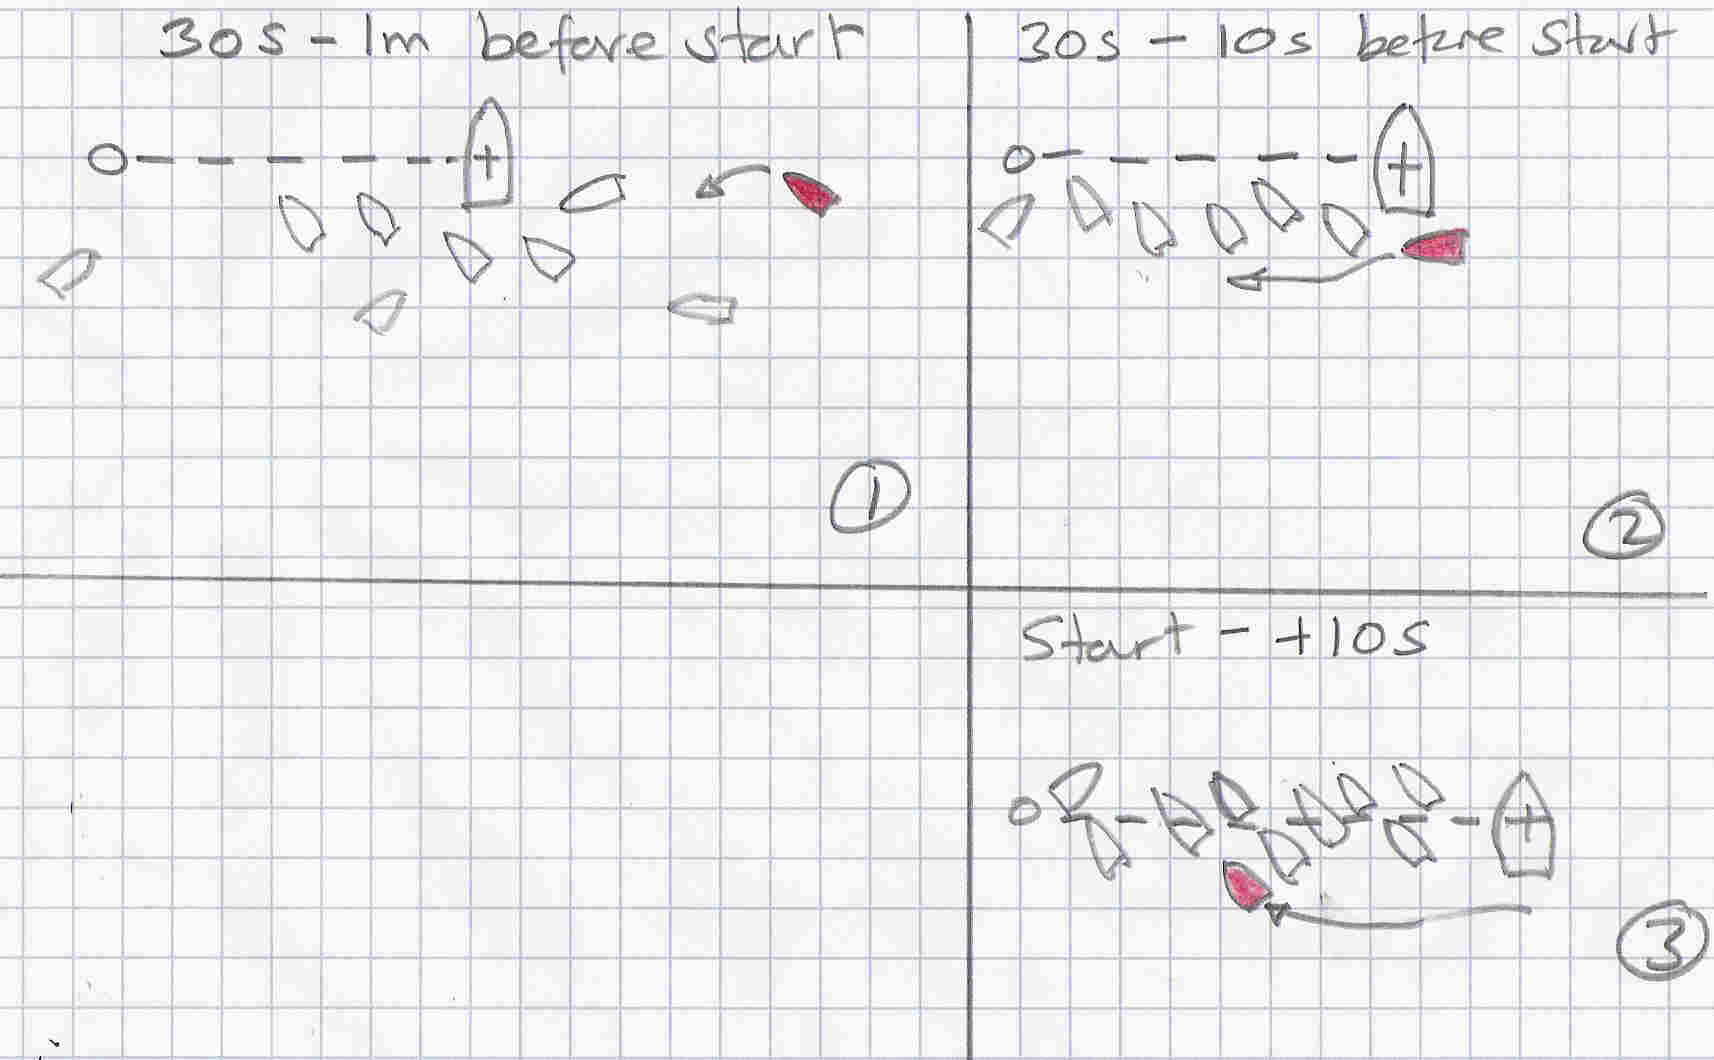 30s - 1m before start
30s - 10s before start
1
2
Start - +10s
3